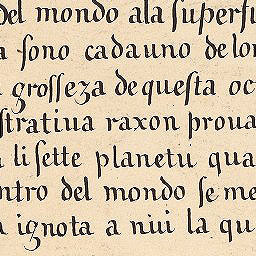 del mondo ala ſuperfi
a ſono cadauno de lor
a groſſeza de queſta oc
ſtratiua raxon proua
a li ſette planetu qua
ntro del mondo ſe me
a ignota a niui la qu